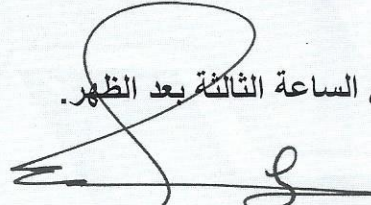 الساعة الثالثة بعد الظهر.